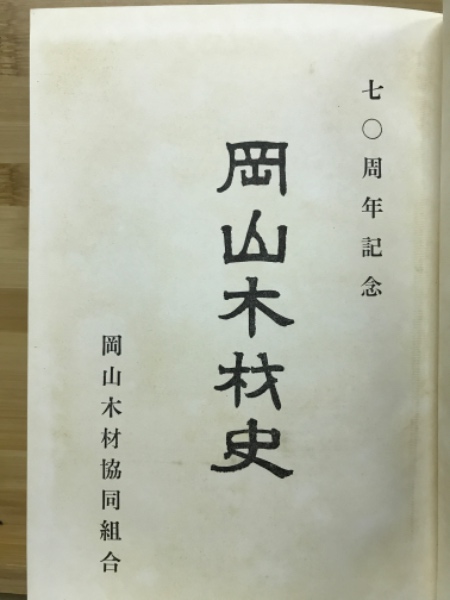 七〇周年記念
岡山木材史
岡山木材協同組合